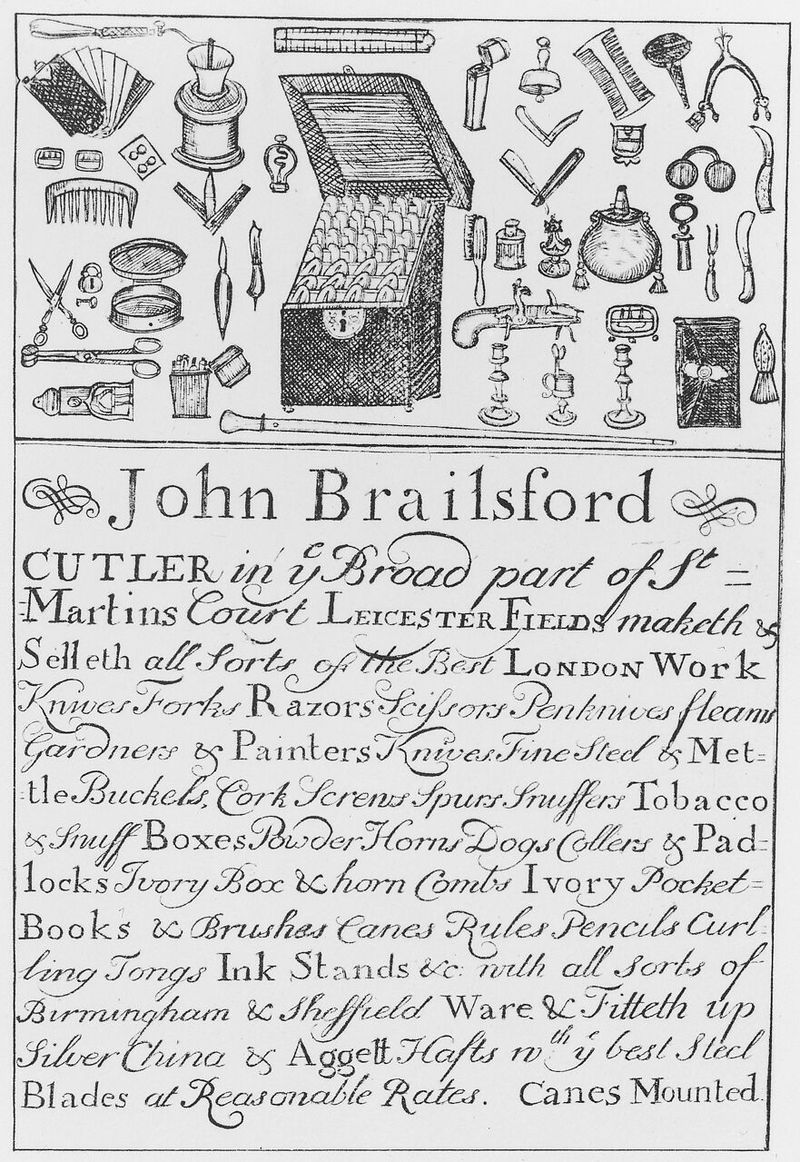 John Brailsford
CUTLER in yᵉ Broad part of Sᵗ =
=Martins Court LEICESTER FIELDS maketh &
Selleth all Sorts of the Best LONDON Work
Knives Forks Razors Scissors Penknives fleams
Gardners & Painters Knives Fine Steel & Met=
=tle Buckels, Cork Screws Spurs Snuffers Tobacco
& Snuff Boxes Powder Horns Dogs Collers & Pad=
locks Ivory Box & horn Combs Ivory Pocket=
Books & Brushes Canes Rules Pencils Curl=
ling Tongs Ink Stands &c with all sorts of
Birmingham & Sheffield Ware & Fitteth up
Silver China & Aggett Hafts wᵗʰ yᵉ best Steel
Blades at Reasonable Rates. Canes Mounted.